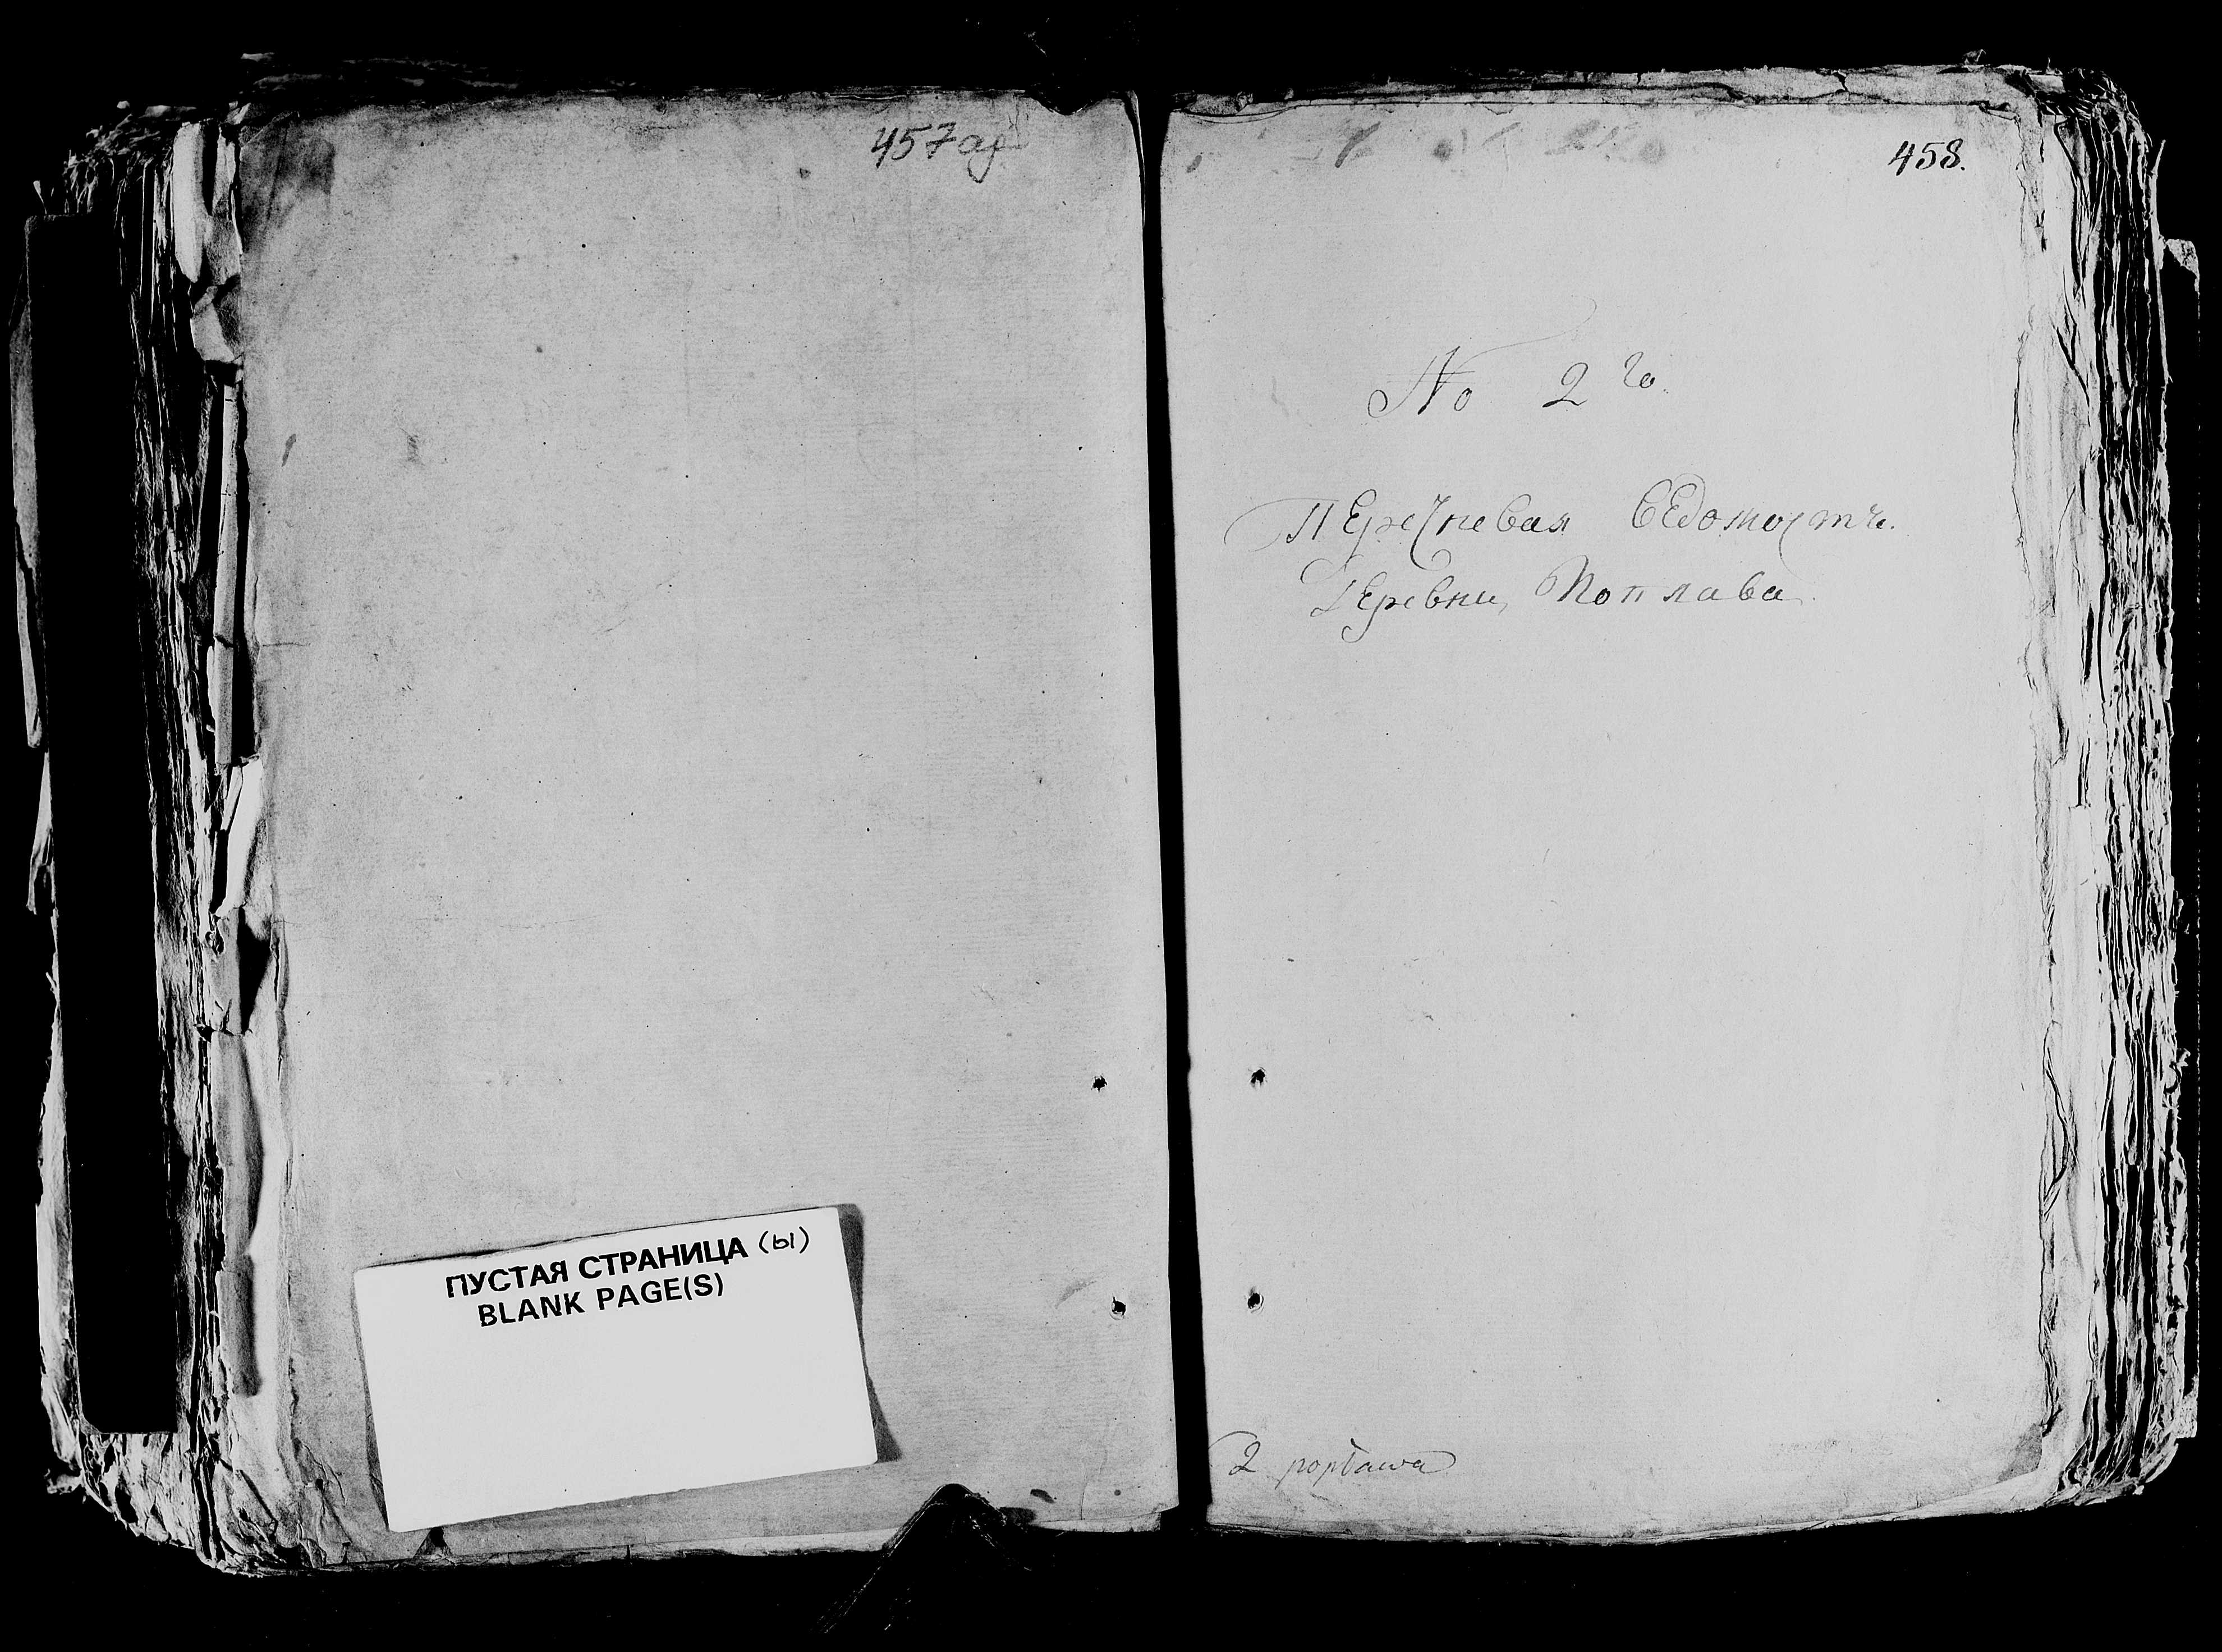 457 об
ПУСТАЯ СТРАНИЦА (ы)
BLANK PAGE(S)
458.
No 2го.
Перечневая ведомость.
Деревни Поплава.
2 popława